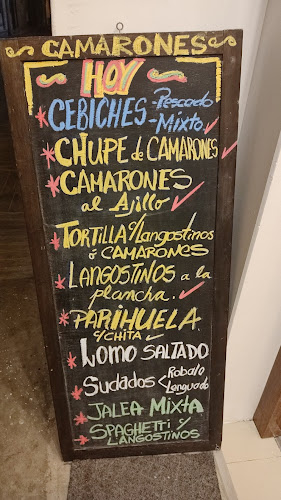 CAMARONES
HOY
CEBICHES - Pescado
- Mixto
CHUPE de CAMARONES
CAMARONES
al Ajillo
TORTILLA c/ Langostinos
ó CAMARONES
LANGOSTINOS a la
plancha.
PARIHUELA
c/ CHITA
LOMO SALTADO
SUDADOS < Robalo
Lenguado
JALEA MIXTA
SPAGHETTI c/
LANGOSTINOS